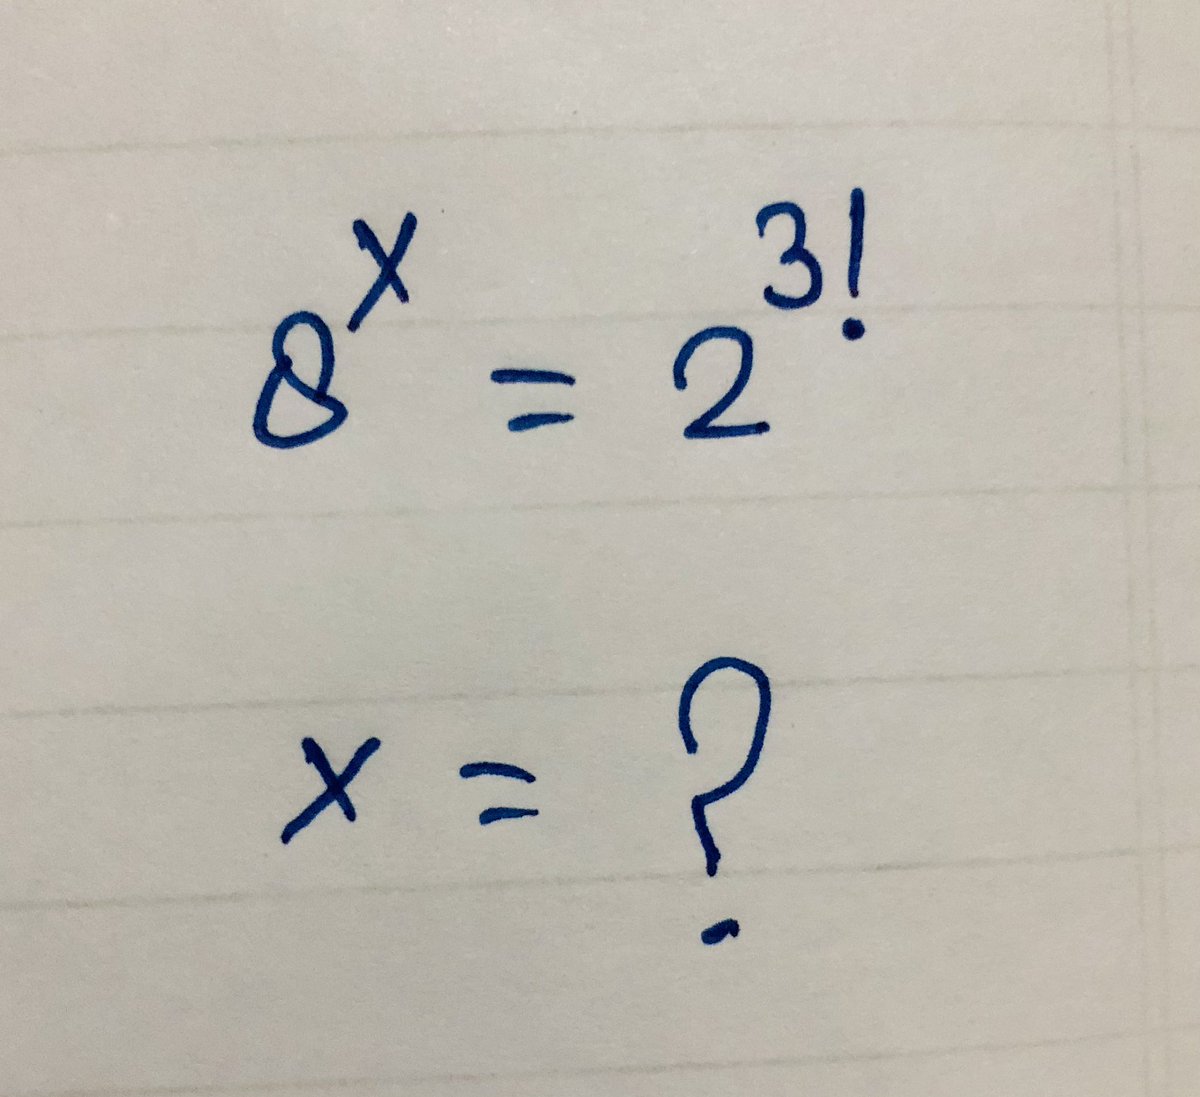 8^x = 2^3!
x = ?